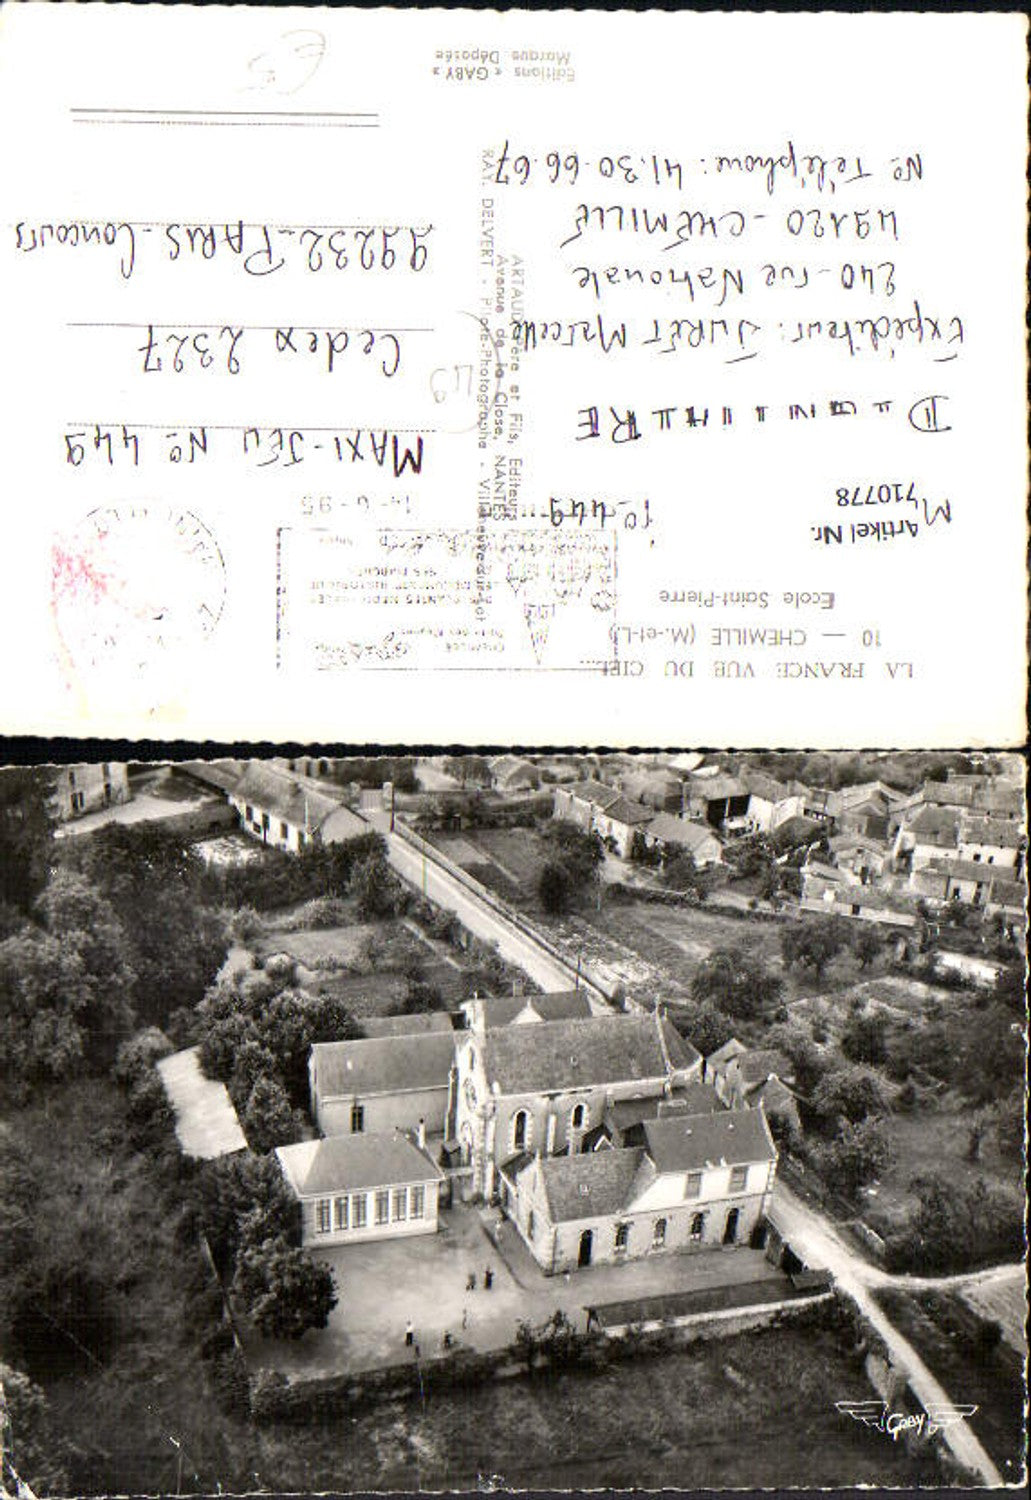 LA FRANCE VUE DU CIEL...
10 — CHEMILLE (M.-et-L.)
Ecole Saint-Pierre
Artikel Nr.
710778
Expéditeur: JURET Marcelle
240 - rue Nationale
49120 - CHEMILLÉ
N° Téléphone: 41.30.66.67
Editions « GABY »
Marque Déposée
ARTAUD Père et Fils, Editeurs
Avenue de la Close, NANTES
RAY. DELVERT - Pilote-Photographe - Villeneuve-sur-Lot
14-6-95
MAXI-JEU N° 449
Cedex 2327
99232 - PARIS - Concours
49
GABY